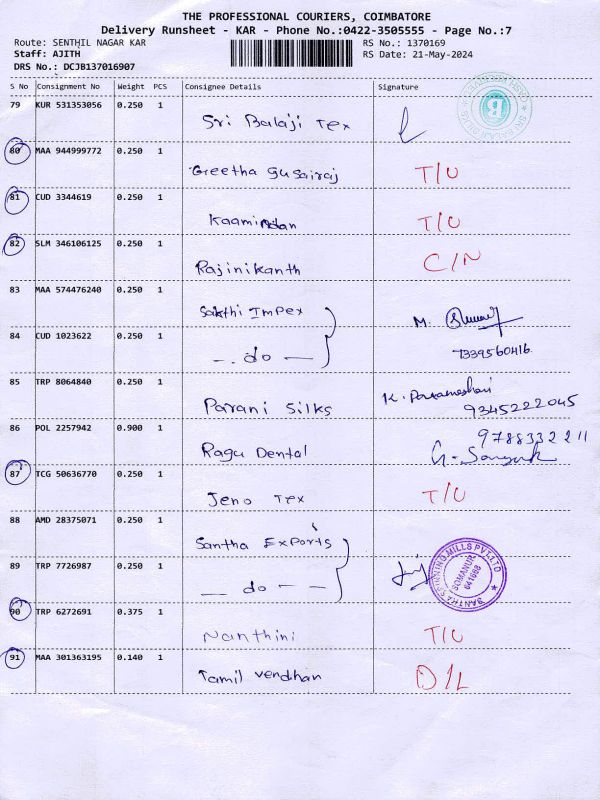 THE PROFESSIONAL COURIERS, COIMBATORE
Delivery Runsheet - KAR - Phone No.:0422-3505555 - Page No.:7
Route: SENTHIL NAGAR KAR RS No.: 1370169
Staff: AJITH RS Date: 21-May-2024
DRS No.: DCJB137016907
S No Consignment No Weight PCS Consignee Details Signature
79 KUR 531353056 0.250 1 Sri Balaji Tex
80 MAA 944999772 0.250 1 Greetha Gusairaj T/U
81 CUD 3344619 0.250 1 T/U
82 SLM 346106125 0.250 1 Rajinikanth C/N
83 MAA 574476240 0.250 1 Sakthi Impex M.
84 CUD 1023622 0.250 1 -. do — 7339560416.
85 TRP 8064840 0.250 1 Parani Silks K. Parameshari
9345222045
86 POL 2257942 0.900 1 Ragu Dental 9788332211
87 TCG 50636770 0.250 1 Jeno Tex T/U
88 AMD 28375071 0.250 1 Santha Exports
89 TRP 7726987 0.250 1 — do — SANTHA SPINNING MILLS PVT.LTD
SOMANUR
641668
90 TRP 6272691 0.375 1 Nanthini T/U
91 MAA 301363195 0.140 1 Tamil Vendhan D/L